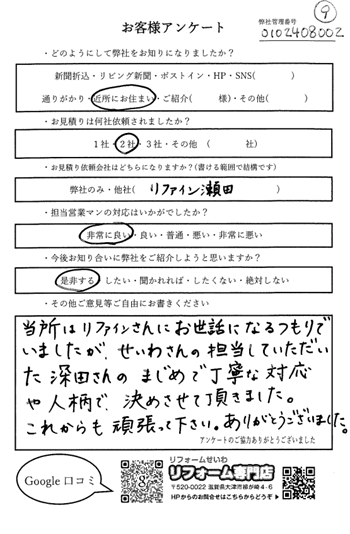 9
お客様アンケート
弊社管理番号
0102408002
・どのようにして弊社をお知りになりましたか？
新聞折込・リビング新聞・ポストイン・HP・SNS(　　　)
通りがかり・近所にお住まい・ご紹介(　　　様)・その他(　　　)
・お見積りは何社依頼されましたか？
1社・2社・3社・その他（　　　社）
・お見積り依頼会社はどちらになりますか？(書ける範囲で結構です)
弊社のみ・他社(　リファイン瀬田　)
・担当営業マンの対応はいかがでしたか？
非常に良い・良い・普通・悪い・非常に悪い
・今後お知り合いに弊社をご紹介しようと思いますか？
是非する・したい・聞かれれば・したくない・絶対しない
・その他ご意見等ご自由にお書きください
当所はリファインさんにお世話になるつもりで
いましたが、せいわさんの担当していただい
た深田さんのまじめで丁寧な対応
や人柄で、決めさせて頂きました。
これからも頑張って下さい。ありがとうございました。
アンケートのご協力ありがとうございました
Google 口コミ
リフォームせいわ
リフォーム専門店
〒520-0022 滋賀県大津市柳が崎4-6
HPからのお問合せはこちらからどうぞ▶